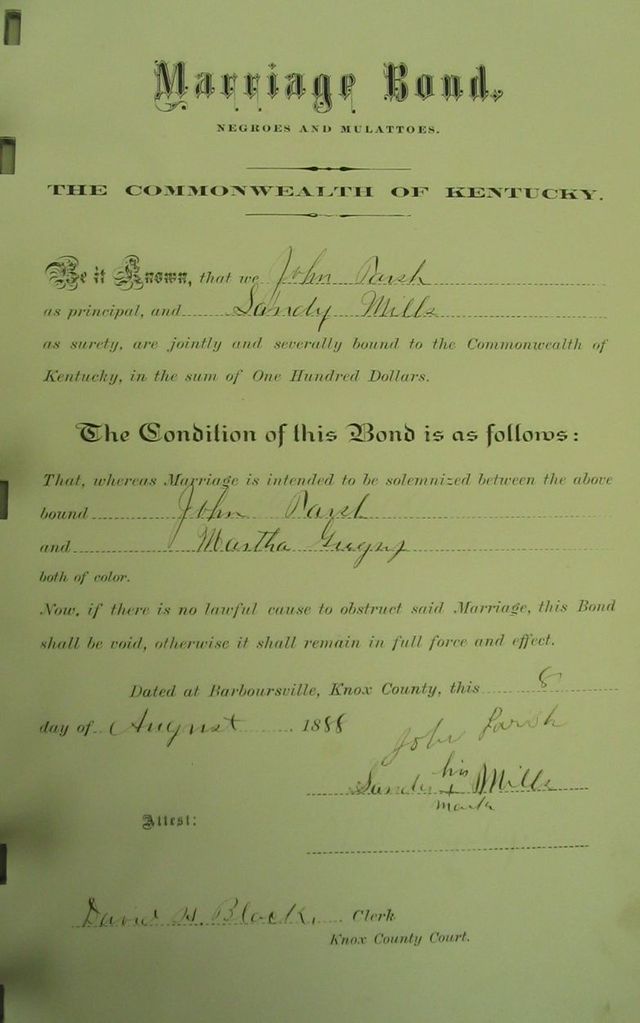 Marriage Bond,
NEGROES AND MULATTOES.
THE COMMONWEALTH OF KENTUCKY.
Be it Known, that we John Parsh
as principal, and Sandy Mills
as surety, are jointly and severally bound to the Commonwealth of
Kentucky, in the sum of One Hundred Dollars.
The Condition of this Bond is as follows:
That, whereas Marriage is intended to be solemnized between the above
bound John Parsh
and Martha
both of color.
Now, if there is no lawful cause to obstruct said Marriage, this Bond
shall be void, otherwise it shall remain in full force and effect.
Dated at Barboursville, Knox County, this 8
day of August 1888
John Parish
his
Sandy + Mills
mark
Attest:
David H. Black, Clerk
Knox County Court.